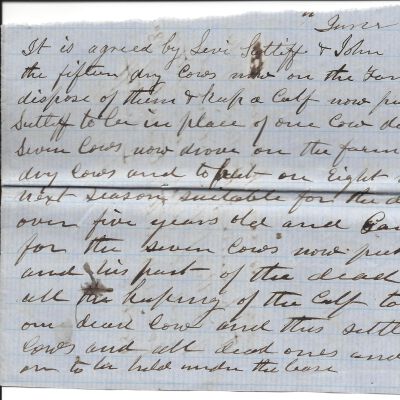 " Turer
It is agreed by Levi Sutliff & John
the fifteen dry Cows now on the Far
dispose of them & keep a Calf now pu
Sutliff to be in place of one Cow d
Seven Cows now drove on the farm
dry Cows and to put on Eight
next season suitable for the d
over five years old and
for the seven Cows now put
and his part of the dead
all the keeping of the Calf to
one dead Cow and this settl
Cows and all dead ones and
are to be held under the lease